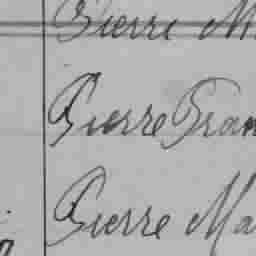 Pierre M
Pierre Fran
Pierre Ma